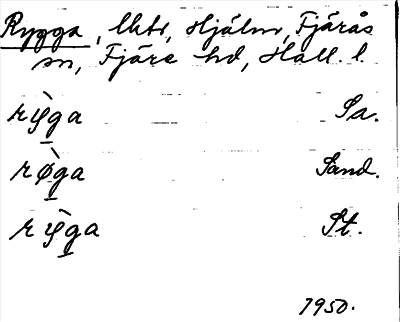 Rygga, lktr, Hjälm, Fjärås
sn, Fjäre hd, Hall. l.
rỳga Sa.
rø̀ga Sand.
rỳga St.
1950.